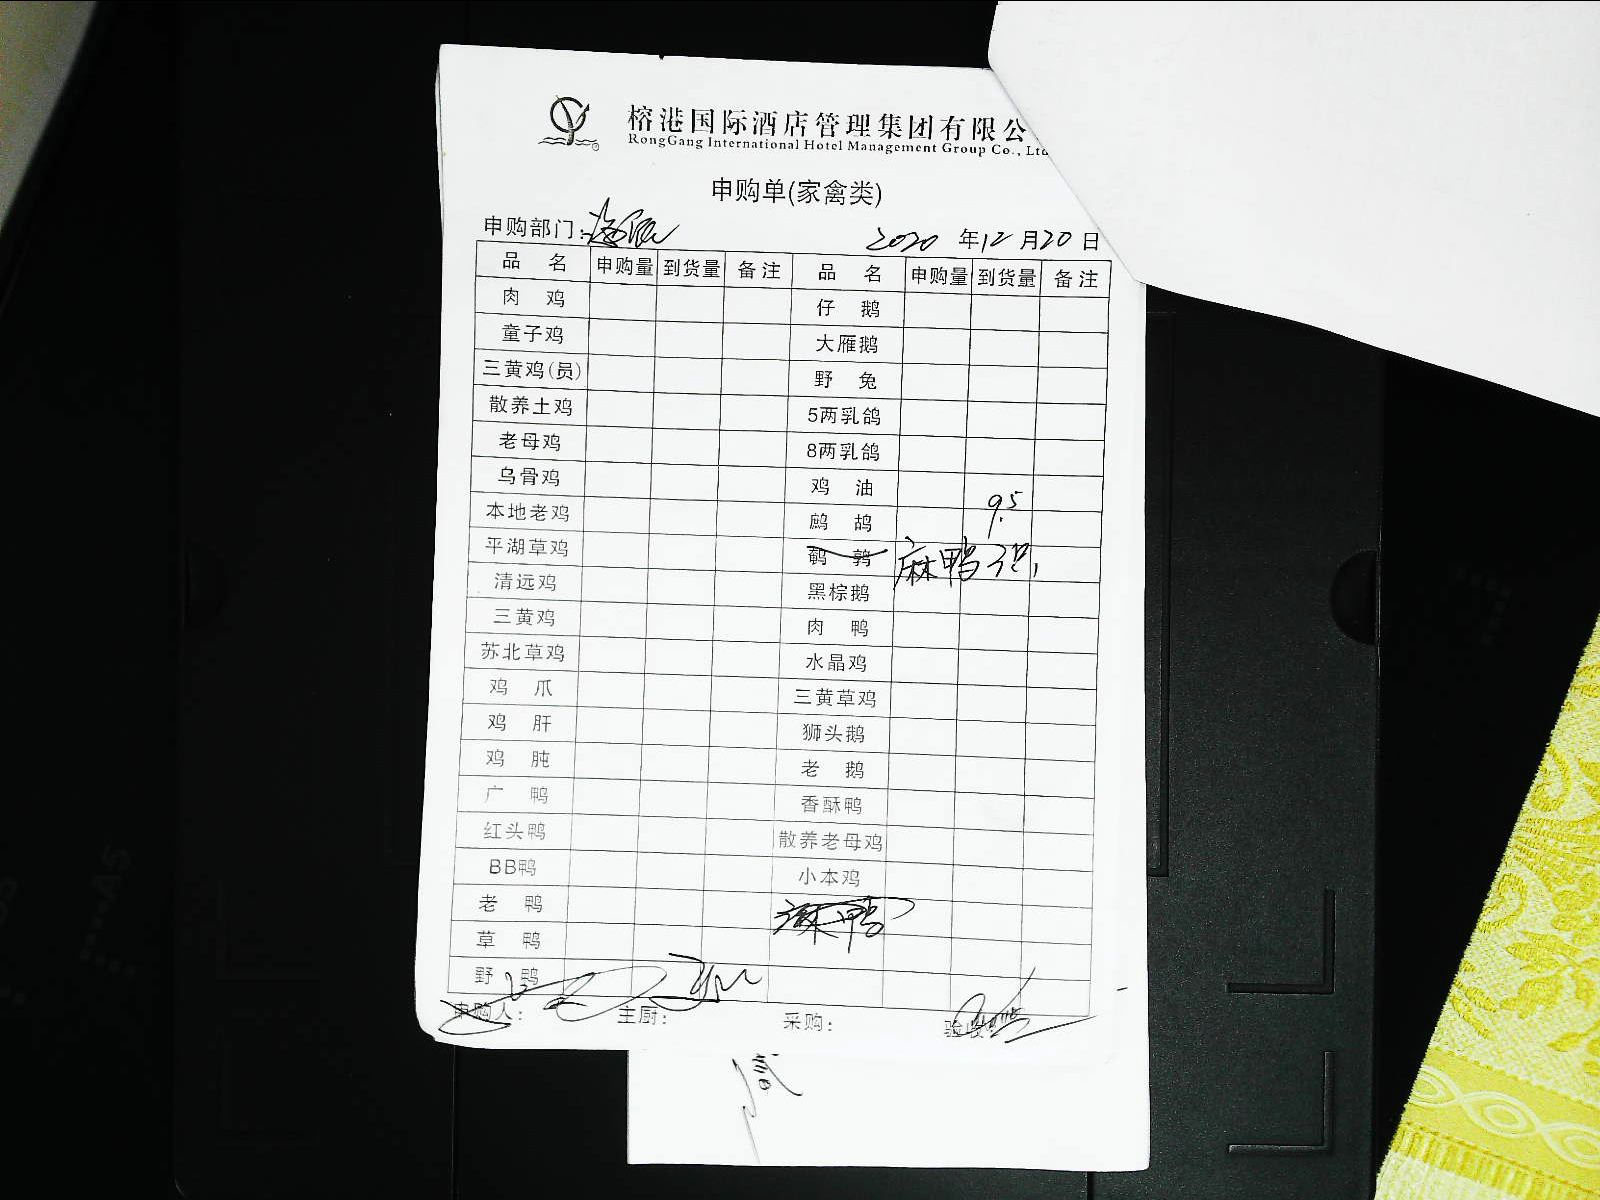 榕港国际酒店管理集团有限公
RongGang International Hotel Management Group Co., Ltd
申购单(家禽类)
申购部门: 2020 年12月20日
品 名 申购量 到货量 备注 品 名 申购量 到货量 备注
肉 鸡 仔 鹅
童子鸡 大雁鹅
三黄鸡(员) 野 兔
散养土鸡 5两乳鸽
老母鸡 8两乳鸽
乌骨鸡 鸡 油
本地老鸡 鹧 鸪 9.5
平湖草鸡 鹌 鹑 麻鸭 3只
清远鸡 黑棕鹅
三黄鸡 肉 鸭
苏北草鸡 水晶鸡
鸡 爪 三黄草鸡
鸡 肝 狮头鹅
鸡 肫 老 鹅
广 鸭 香酥鸭
红头鸭 散养老母鸡
BB鸭 小本鸡
老 鸭 麻鸭
草 鸭
野 鸭
申购人: 主厨: 采购: 验收